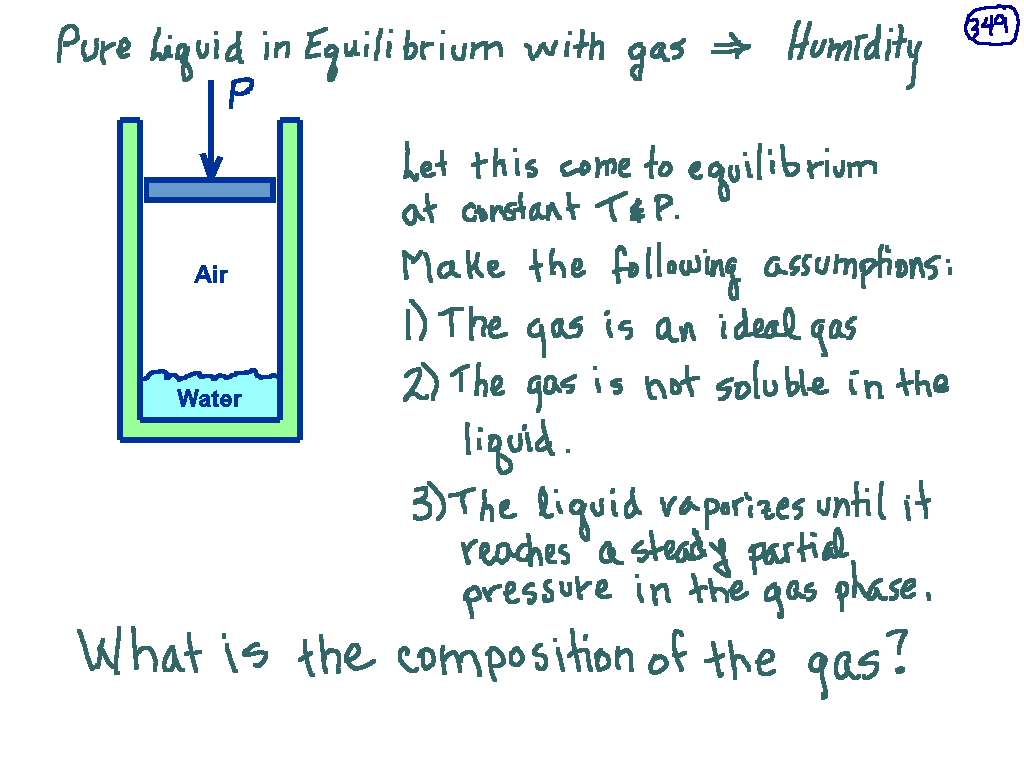 Pure Liquid in Equilibrium with gas ⇒ Humidity
349
P
Let this come to equilibrium
at constant T & P.
Make the following assumptions:
1) The gas is an ideal gas
Air
2) The gas is not soluble in the
liquid.
Water
3) The liquid vaporizes until it
reaches a steady partial
pressure in the gas phase.
What is the composition of the gas?